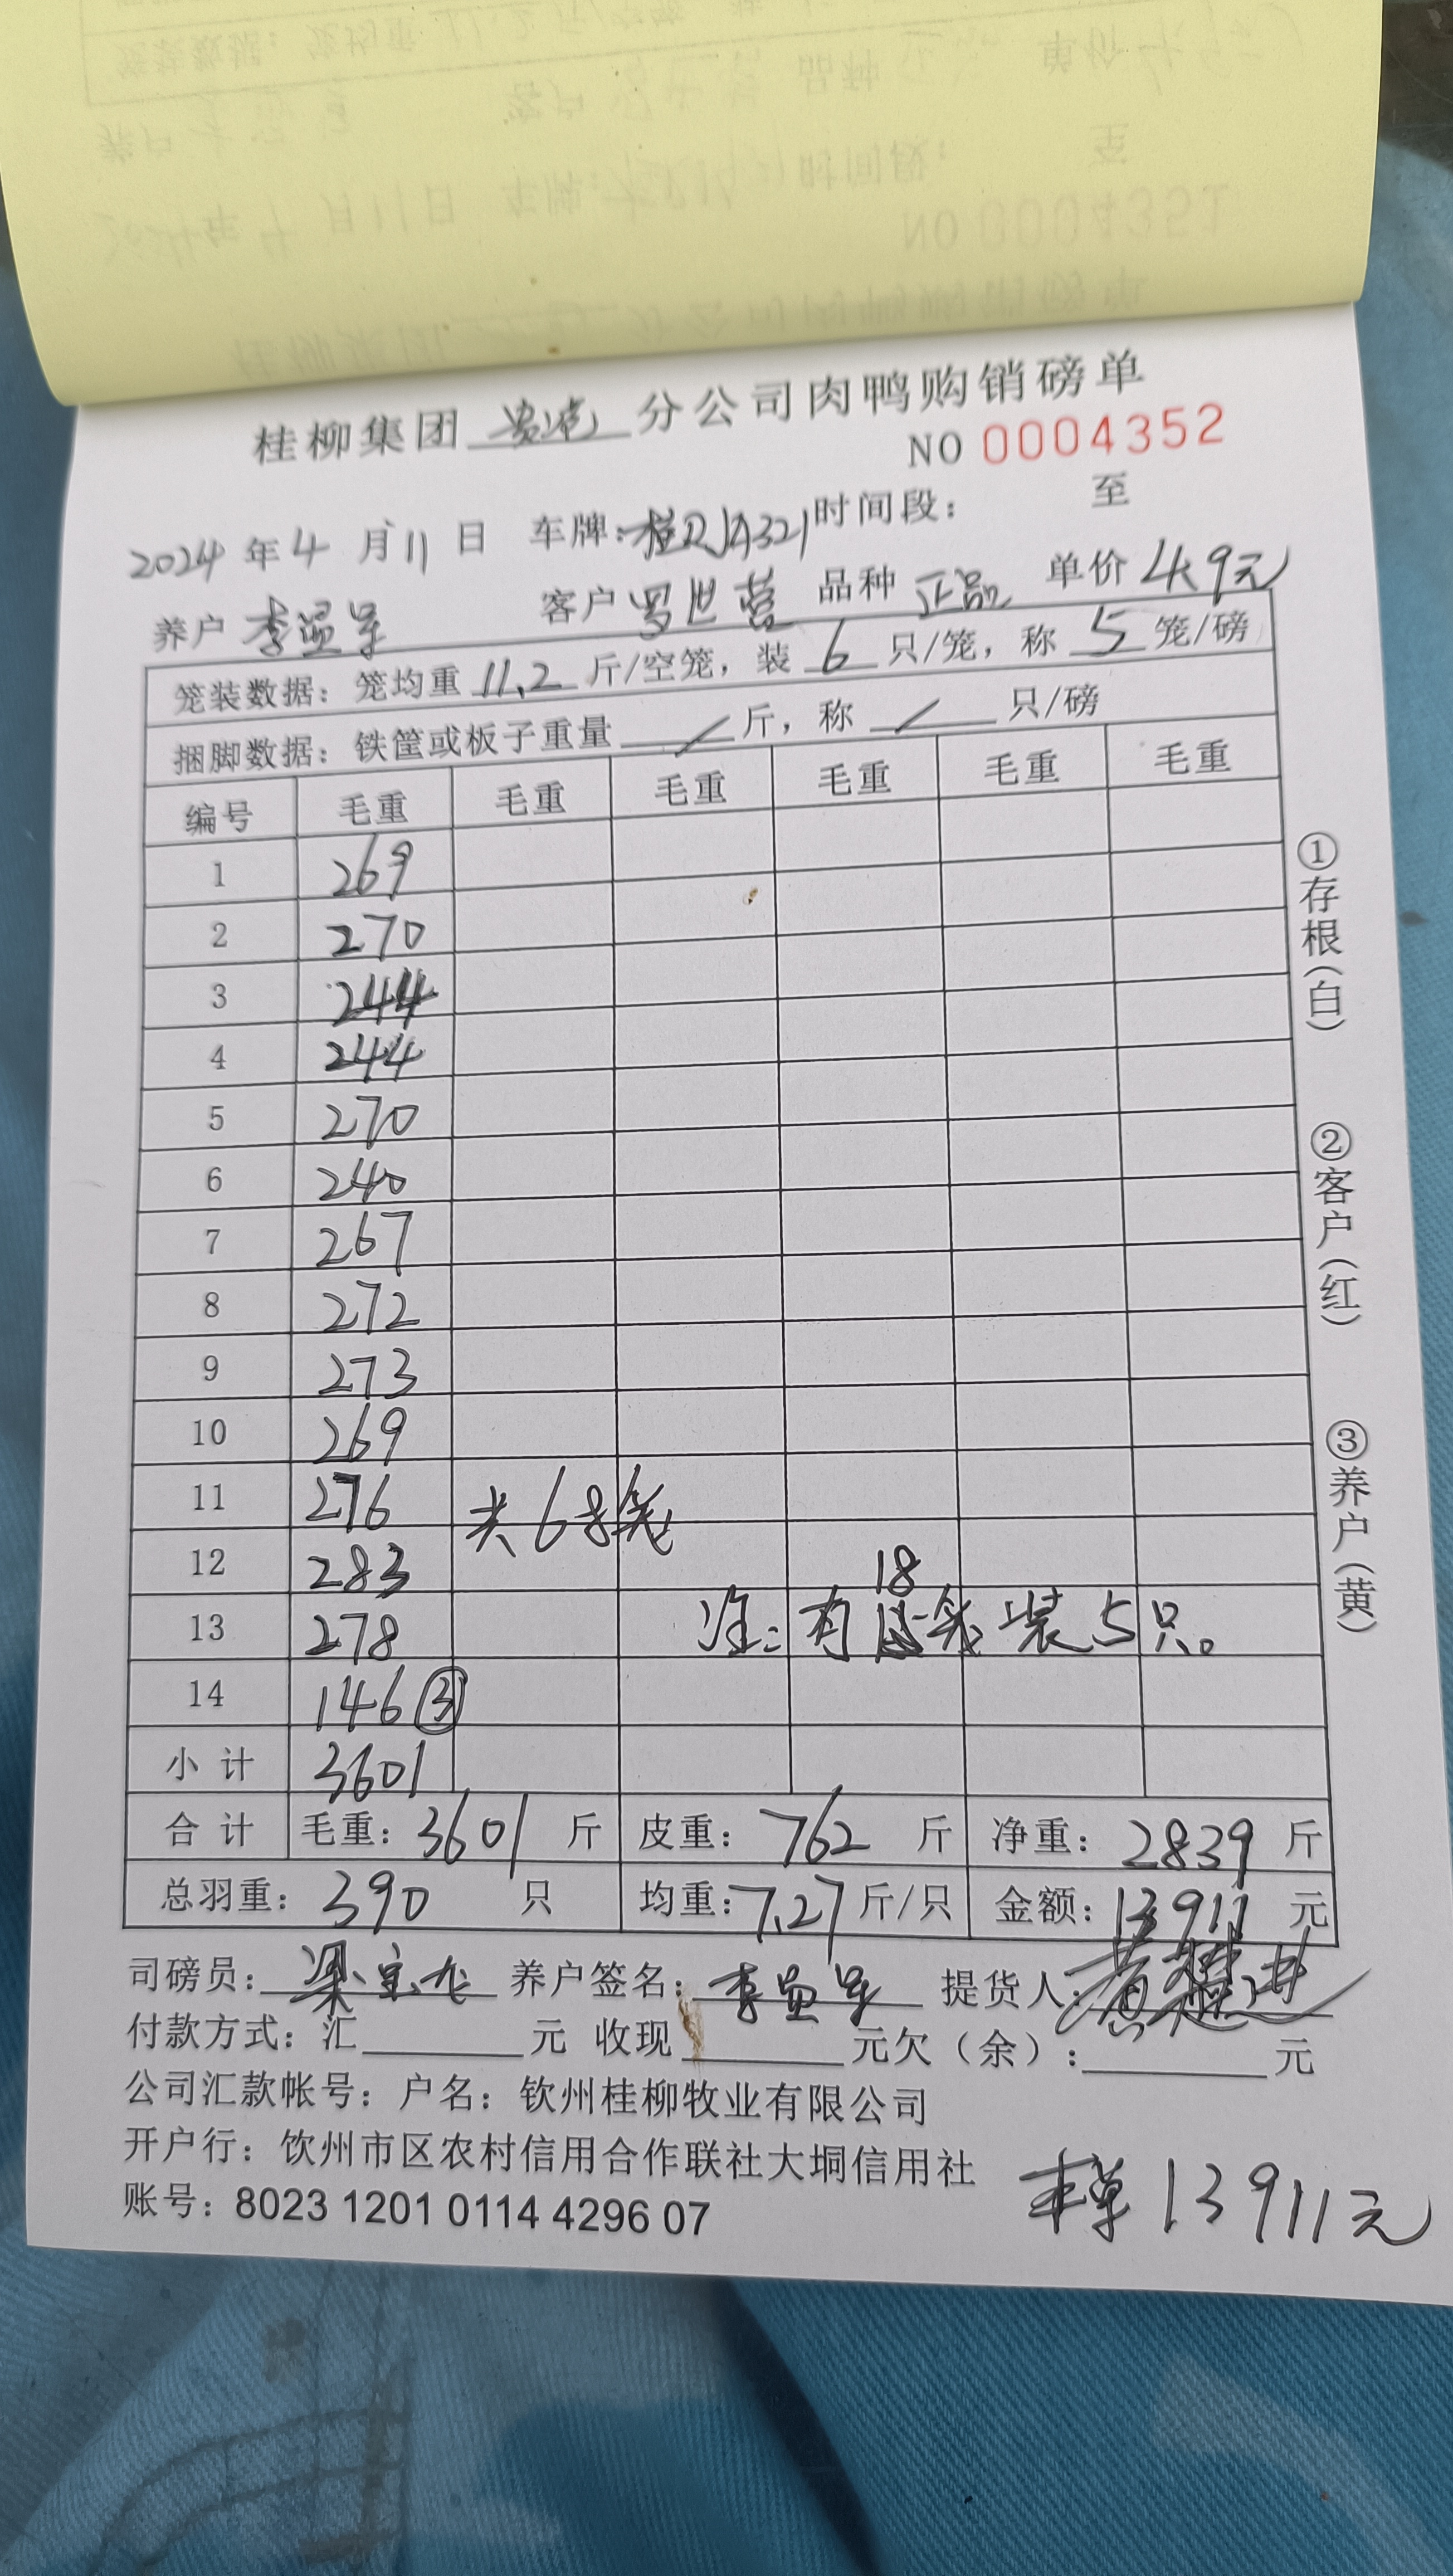 桂柳集团 贵港 分公司肉鸭购销磅单
NO 0004352
2024 年 4 月 11 日 车牌: 时间段: 至
养户 李 客户 罗世营 品种 正品 单价 4.9元
笼装数据: 笼均重 11.2 斤/空笼, 装 6 只/笼, 称 5 笼/磅
捆脚数据: 铁筐或板子重量 / 斤, 称 / 只/磅
编号 毛重 毛重 毛重 毛重 毛重 毛重
1 269
2 270
3 244
4 244
5 270
6 240
7 267
8 272
9 273
10 269
11 276 共68笼
12 283
13 278 注: 有18笼装5只。
14 146 ③
小计 3601
合计 毛重: 3601 斤 皮重: 762 斤 净重: 2839 斤
总羽重: 390 只 均重: 7.27 斤/只 金额: 13911 元
司磅员: 梁宝龙 养户签名: 李 提货人: 黄
付款方式: 汇 元 收现 元欠(余): 元
公司汇款帐号: 户名: 钦州桂柳牧业有限公司
开户行: 钦州市区农村信用合作联社大垌信用社
账号: 8023 1201 0114 4296 07
本单 13911元
①存根(白)
②客户(红)
③养户(黄)